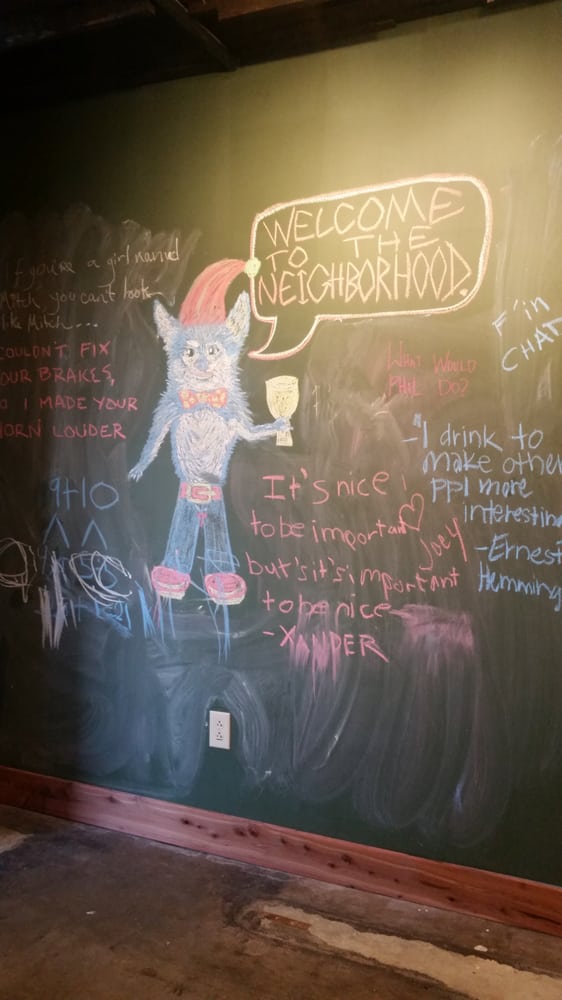 WELCOME
TO THE
NEIGHBORHOOD.
If you're a girl named
Mitch you can't look
like Mitch...
COULDN'T FIX
OUR BRAKES,
O I MADE YOUR
HORN LOUDER
9+10
F'in
CHAT
WHAT WOULD
PHIL DO?
-"I drink to
make other
ppl more
interestin
-Ernest
Hemming
It's nice
to be important
but's it's important
to be nice
-XANDER
Joey